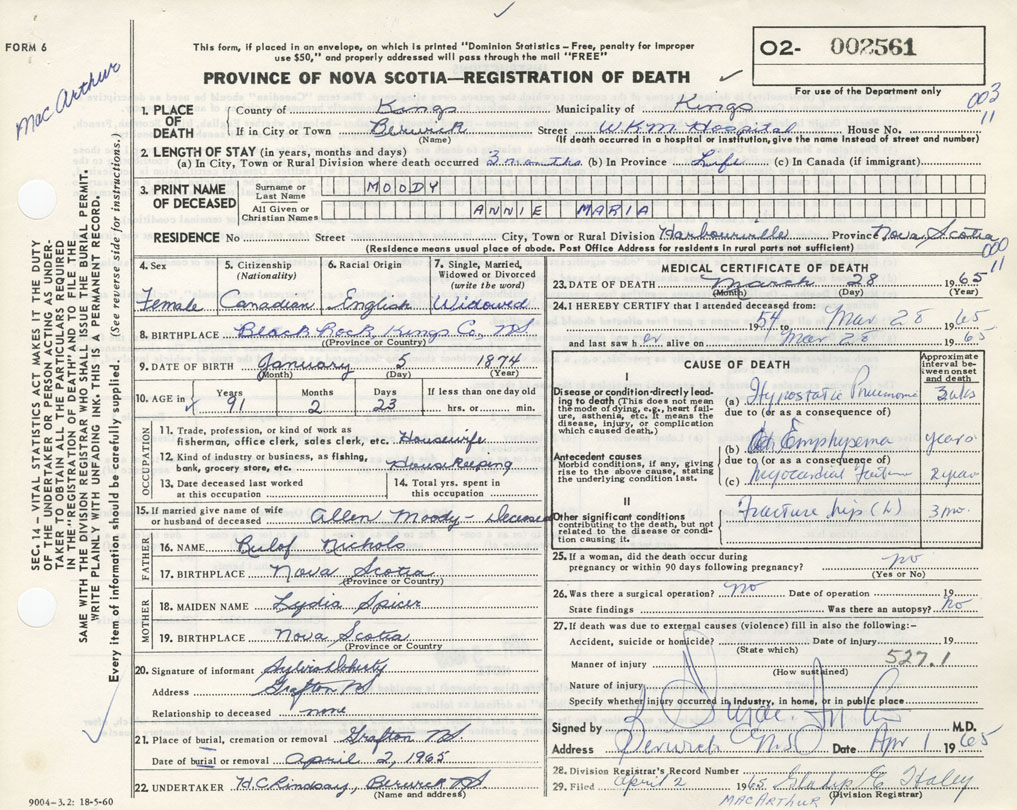 FORM 6
This form, if placed in an envelope, on which is printed "Dominion Statistics – Free, penalty for improper
use $50," and properly addressed will pass through the mail "FREE"
PROVINCE OF NOVA SCOTIA—REGISTRATION OF DEATH
O2- 002561
For use of the Department only
MacArthur
003
11
1. PLACE OF DEATH
County of Kings Municipality of Kings
If in City or Town Berwick Street WKM Hospital House No.
(Name) (If death occurred in a hospital or institution, give the name instead of street and number)
2. LENGTH OF STAY (in years, months and days)
(a) In City, Town or Rural Division where death occurred 3 months (b) In Province Life (c) In Canada (if immigrant)
3. PRINT NAME OF DECEASED
Surname or Last Name MOODY
All Given or Christian Names ANNIE MARIA
RESIDENCE No Street City, Town or Rural Division Harbourville Province Nova Scotia
(Residence means usual place of abode. Post Office Address for residents in rural parts not sufficient)
000
11
SEC. 14 – VITAL STATISTICS ACT MAKES IT THE DUTY
OF THE UNDERTAKER OR PERSON ACTING AS UNDER-
TAKER TO OBTAIN ALL THE PARTICULARS REQUIRED
IN THE "REGISTRATION OF DEATH" AND TO FILE THE
SAME WITH THE DIVISION REGISTRAR WHO SHALL ISSUE THE BURIAL PERMIT.
WRITE PLAINLY WITH UNFADING INK. THIS IS A PERMANENT RECORD.
Every item of information should be carefully supplied. (See reverse side for instructions.)
4. Sex
Female
5. Citizenship
(Nationality)
Canadian
6. Racial Origin
English
7. Single, Married,
Widowed or Divorced
(write the word)
Widowed
8. BIRTHPLACE Black Rock Kings Co. NS
(Province or Country)
9. DATE OF BIRTH January 5 1874
(Month) (Day) (Year)
10. AGE in Years Months Days If less than one day old
91 2 23 hrs. or min.
OCCUPATION
11. Trade, profession, or kind of work as
fisherman, office clerk, sales clerk, etc. Housewife
12. Kind of industry or business, as fishing,
bank, grocery store, etc. Housekeeping
13. Date deceased last worked
at this occupation
14. Total yrs. spent in
this occupation
15. If married give name of wife
or husband of deceased Allen Moody - Deceased
FATHER
16. NAME Rulof Nichols
17. BIRTHPLACE Nova Scotia
(Province or Country)
MOTHER
18. MAIDEN NAME Lydia Spicer
19. BIRTHPLACE Nova Scotia
(Province or Country
20. Signature of informant Doherty
Address Grafton NS
Relationship to deceased none
21. Place of burial, cremation or removal Grafton NS
Date of burial or removal April 2, 1965
22. UNDERTAKER H.C. Lindsay, Berwick NS
(Name and address)
9004–3.2: 18-5-60
MEDICAL CERTIFICATE OF DEATH
23. DATE OF DEATH March 28 1965
(Month) (Day) (Year)
24. I HEREBY CERTIFY that I attended deceased from:
1954 to Mar 28 1965
and last saw her alive on Mar 28 1965
CAUSE OF DEATH
Approximate
interval be-
tween onset
and death
I
Disease or condition directly lead-
ing to death (This does not mean
the mode of dying, e.g., heart fail-
ure, asthenia, etc. It means the
disease, injury, or complication
which caused death.)
(a) Hypostatic Pneumonia 3 wks
due to (or as a consequence of)
(b) Emphysema years
Antecedent causes
Morbid conditions, if any, giving
rise to the above cause, stating
the underlying condition last.
due to (or as a consequence of)
(c) Myocardial Failure 2 years
II
Other significant conditions
contributing to the death, but not
related to the disease or condi-
tion causing it.
Fracture hip (L) 3 mo.
25. If a woman, did the death occur during
pregnancy or within 90 days following pregnancy? no
(Yes or No)
26. Was there a surgical operation? no Date of operation 19
State findings Was there an autopsy? no
27. If death was due to external causes (violence) fill in also the following:–
Accident, suicide or homicide? Date of injury 19
(State which)
527.1
Manner of injury
(How sustained)
Nature of injury
Specify whether injury occurred in Industry, in home, or in public place
Signed by M.D.
Address Berwick N.S. Date Apr 1 1965
28. Division Registrar's Record Number
29. Filed April 2 1965 Gladys E Haley
(Division Registrar)
MACARTHUR